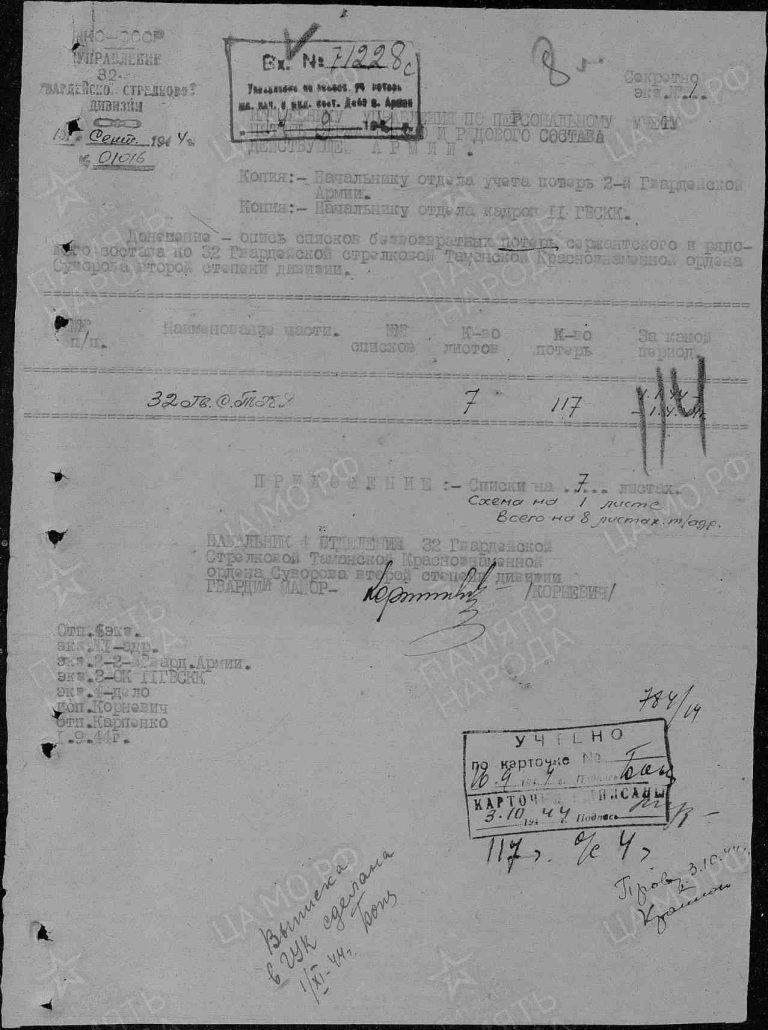 НКО-СССР
УПРАВЛЕНИЕ
32-
ГВАРДЕЙСКОЙ СТРЕЛКОВОЙ
ДИВИЗИИ
Сент. 1944г.
№ 01016
Вх. № 71228с
Секретно
экз.№ 1.
НАЧАЛЬНИКУ УПРАВЛЕНИЯ ПО ПЕРСОНАЛЬНОМУ УЧЕТУ
И РЯДОВОГО СОСТАВА
ДЕЙСТВУЮЩЕЙ АРМИИ.
Копия:- Начальнику отдела учета потерь 2-й Гвардейской
Армии.
Копия:- Начальнику отдела кадров 11 ГВСКК.
Донесение - опись списков безвозвратных потерь, сержантского и рядо-
вого состава по 32 Гвардейской стрелковой Таманской Краснознаменной ордена
Суворова второй степени дивизии.
№№ п/п. Наименование части. №№ списков К-во листов К-во потерь За какой период.
32 Гв.С.ТКД 7 117
1/14
ПРИЛОЖЕНИЕ:- Списки на .7... листах.
Схема на 1 листе
Всего на 8 листах т/адр.
НАЧАЛЬНИК 4 ОТДЕЛЕНИЯ 32 Гвардейской
Стрелковой Таманской Краснознаменной
ордена Суворова второй степени дивизии
ГВАРДИИ МАЙОР- /КОРНЕВИЧ/
Отп.4экз.
экз.№1-адр.
экз.2-2-й Гвард.Армии.
экз.3-ОК 11ГВСКК
экз.4-дело
исп.Корневич
отп.Карпенко
1.9.44г.
784/14
УЧТЕНО
по карточке №
26.9 1944 г. Подпись
КАРТОЧКИ ВЫПИСАНЫ
3.10 1944 Подпись
117
3.10.44
Выписка
в ГУК сделана
1/XI-44г.
ЦАМО.РФ
ПАМЯТЬ
НАРОДА